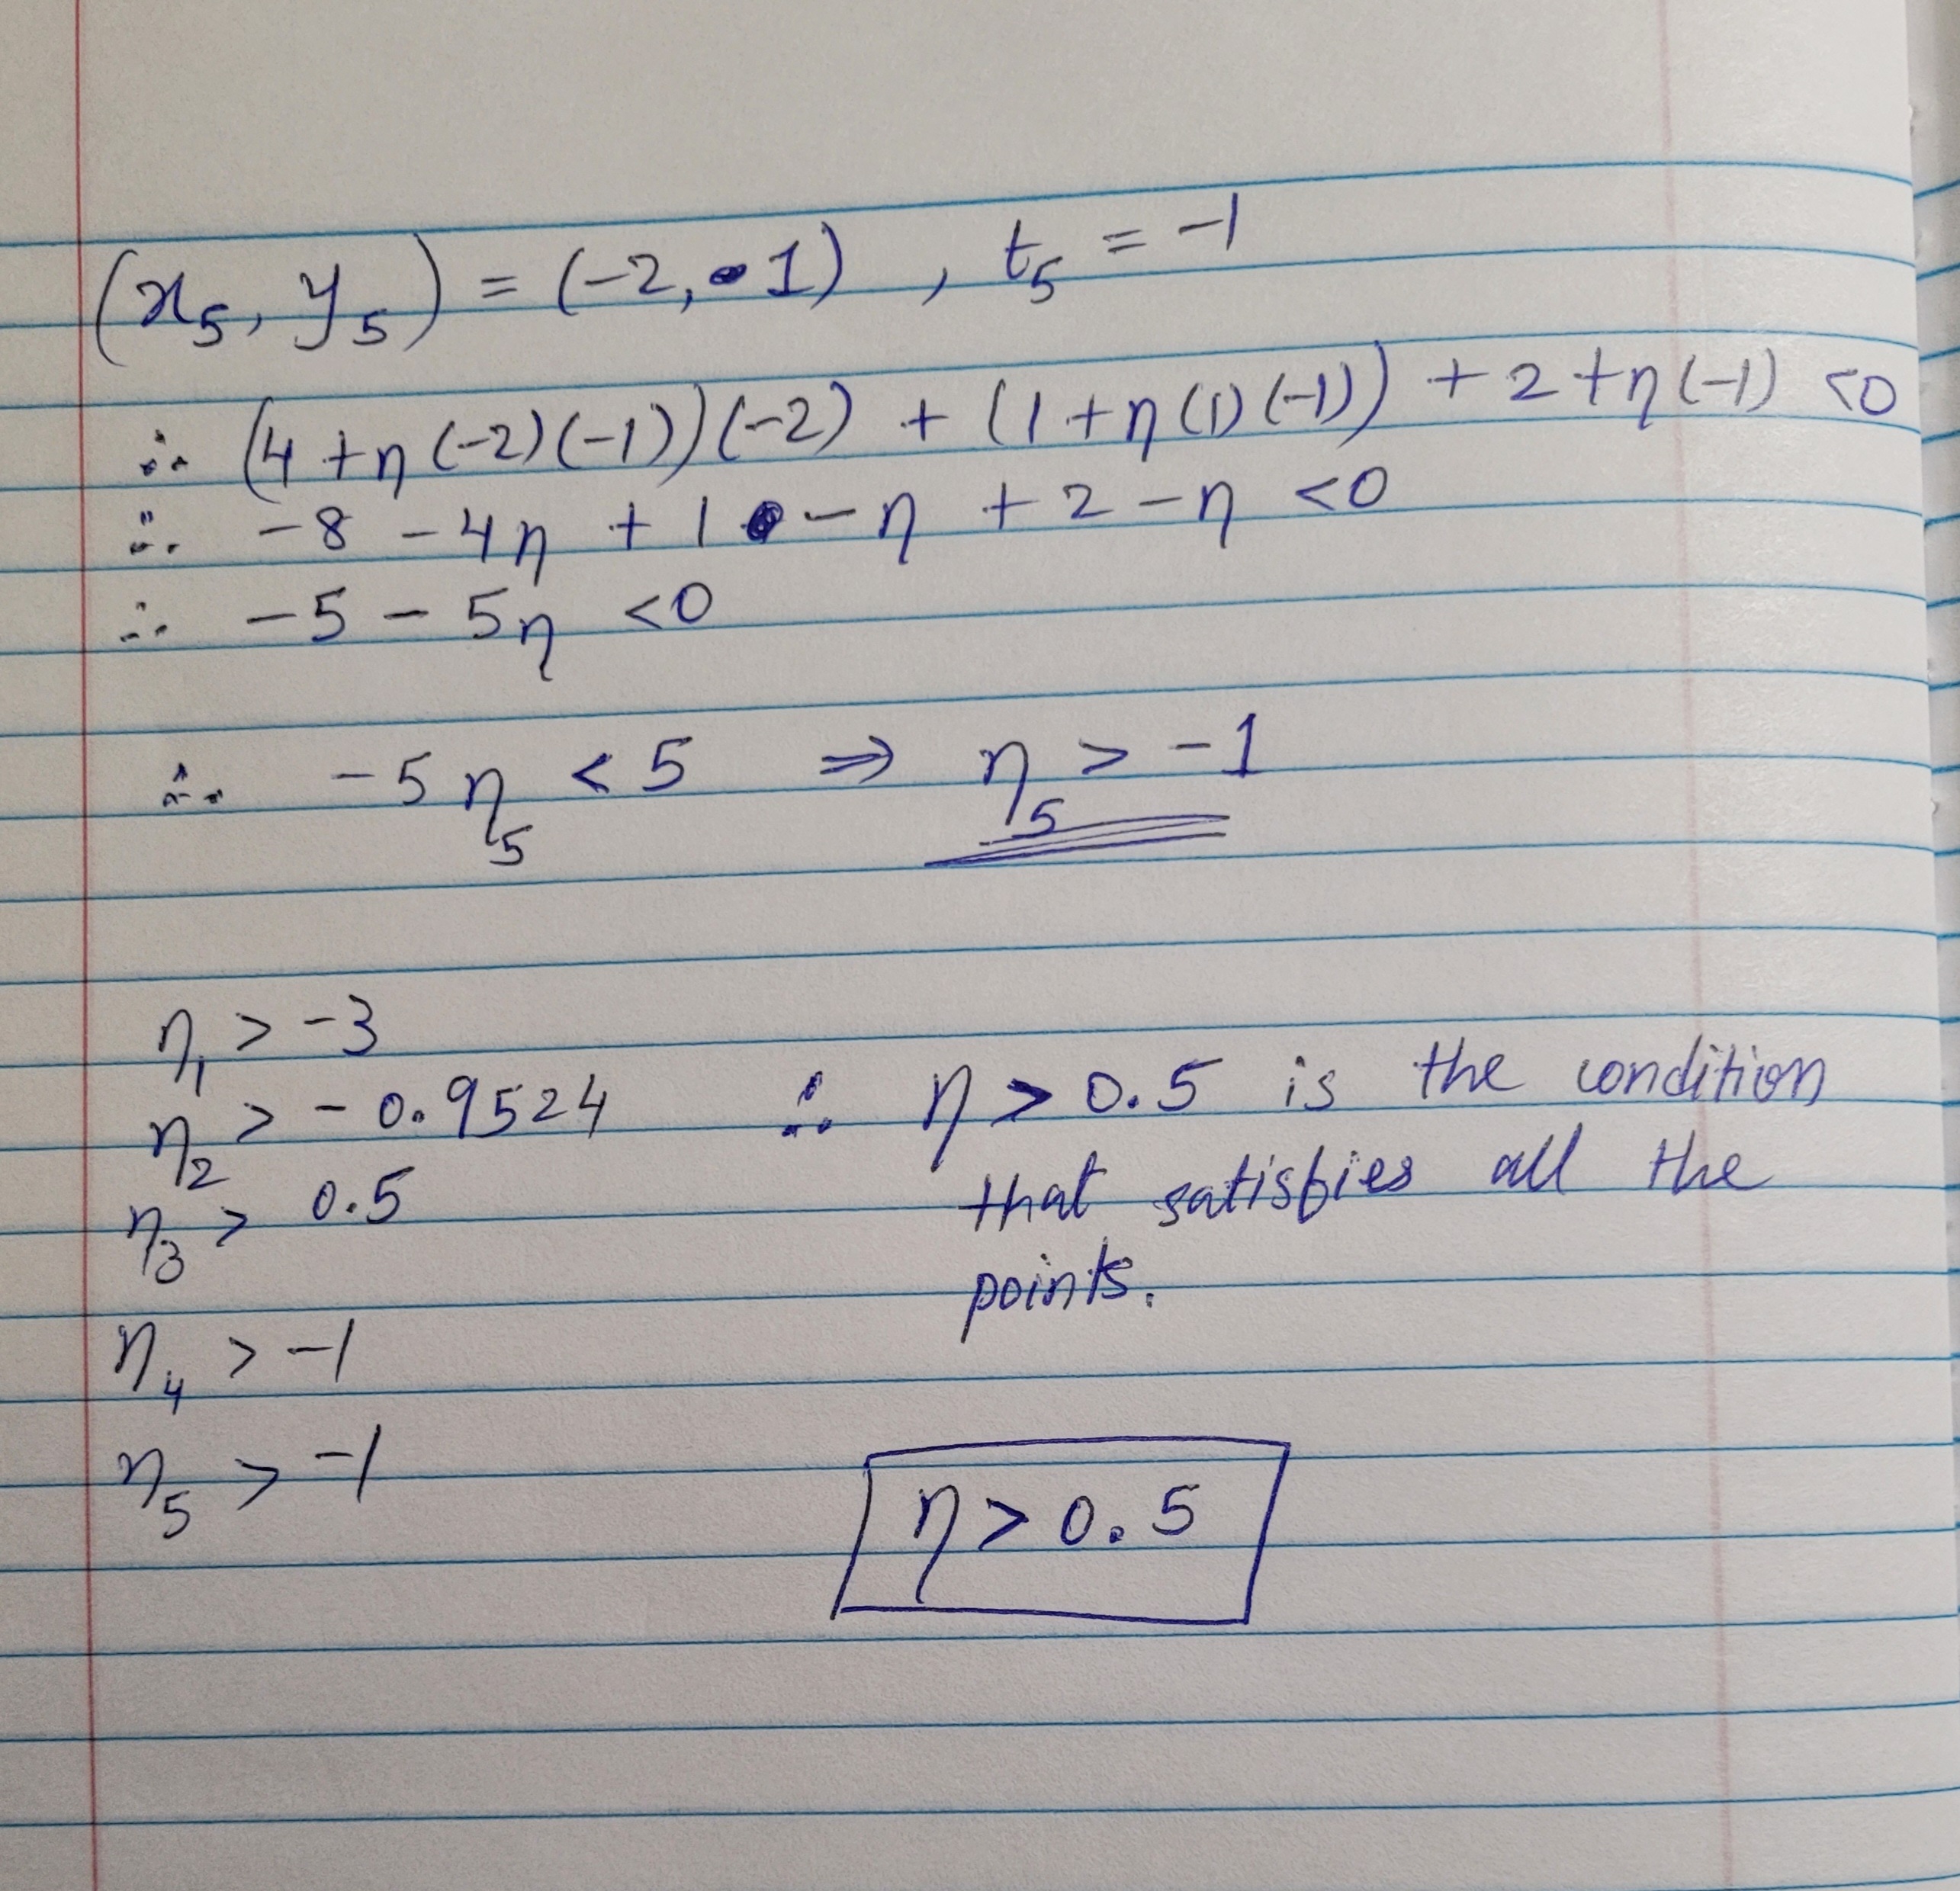 (x₅, y₅) = (-2, 1) , t₅ = -1
∴ (4 + η(-2)(-1))(-2) + (1 + η(1)(-1)) + 2 + η(-1) <0
∴ -8 - 4η + 1 - η + 2 - η <0
∴ -5 - 5η <0
∴ -5η₅ < 5 ⇒ η₅ > -1
η₁ > -3
η₂ > -0.9524
η₃ > 0.5
η₄ > -1
η₅ > -1
∴ η > 0.5 is the condition
that satisfies all the
points.
η > 0.5